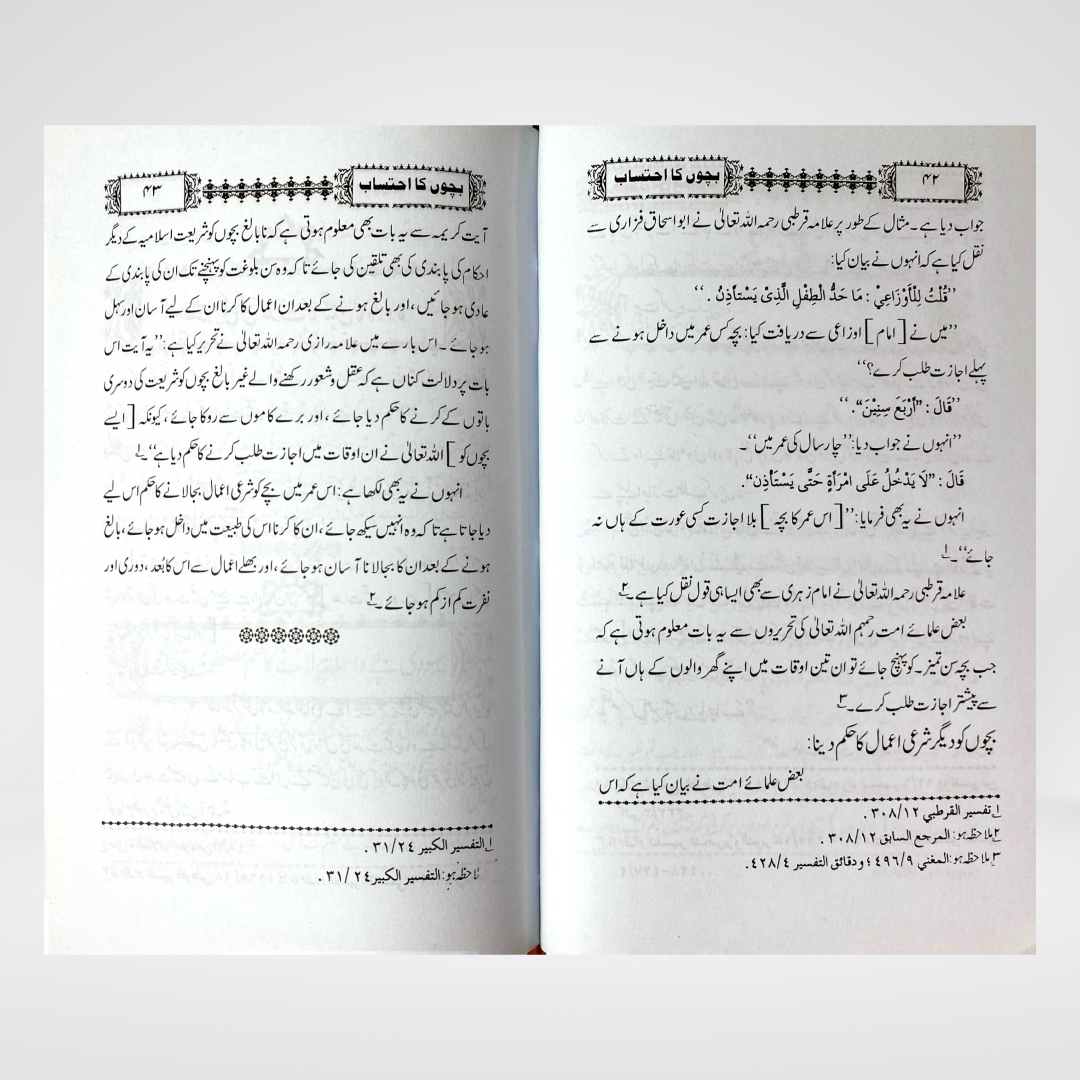 ۴۲ بچوں کا احتساب
جواب دیا ہے۔ مثال کے طور پر علامہ قرطبی رحمہ اللہ تعالیٰ نے ابو اسحاق فزاری سے
نقل کیا ہے کہ انہوں نے بیان کیا:
’’قُلْتُ لِلْأَوْزَاعِيْ : مَا حَدُّ الْطِفْلِ الَّذِىْ يَسْتَأْذِنُ . ‘‘
’’میں نے [ امام ] اوزاعی سے دریافت کیا: بچہ کس عمر میں داخل ہونے سے
پہلے اجازت طلب کرے؟‘‘
’’قَالَ : ”أَرْبَعَ سِنِيْنَ“. ‘‘
’’انہوں نے جواب دیا: ’’چار سال کی عمر میں‘‘۔
قَالَ : ”لَا يَدْخُلُ عَلَى امْرَأَةٍ حَتَّى يَسْتَأْذِن“.
انہوں نے یہ بھی فرمایا: ’’[ اس عمر کا بچہ ] بلا اجازت کسی عورت کے ہاں نہ
جائے‘‘۔۱
علامہ قرطبی رحمہ اللہ تعالیٰ نے امام زہری سے بھی ایسا ہی قول نقل کیا ہے۔۲
بعض علمائے امت رحمہم اللہ تعالیٰ کی تحریروں سے یہ بات معلوم ہوتی ہے کہ
جب بچہ سن تمیز۔ کو پہنچ جائے تو ان تین اوقات میں اپنے گھر والوں کے ہاں آنے
سے پیشتر اجازت طلب کرے۔۳
بچوں کو دیگر شرعی اعمال کا حکم دینا:
بعض علمائے امت نے بیان کیا ہے کہ اس
۱ تفسير القرطبي ۳۰۸/۱۲ .
۲ ملاحظہ ہو: المرجع السابق ۳۰۸/۱۲ .
۳ ملاحظہ ہو: المغني ۴۹۶/۹ ؛ ودقائق التفسير ۴۲۸/۴.
بچوں کا احتساب ۴۳
آیت کریمہ سے یہ بات بھی معلوم ہوتی ہے کہ نابالغ بچوں کو شریعت اسلامیہ کے دیگر
احکام کی پابندی کی بھی تلقین کی جائے تاکہ وہ سن بلوغت کو پہنچنے تک ان کی پابندی کے
عادی ہو جائیں ، اور بالغ ہونے کے بعد ان اعمال کا کرنا ان کے لیے آسان اور سہل
ہو جائے ۔ اس بارے میں علامہ رازی رحمہ اللہ تعالیٰ نے تحریر کیا ہے: ’’یہ آیت اس
بات پر دلالت کناں ہے کہ عقل و شعور رکھنے والے غیر بالغ بچوں کو شریعت کی دوسری
باتوں کے کرنے کا حکم دیا جائے ، اور برے کاموں سے روکا جائے ، کیونکہ [ ایسے
بچوں کو ] اللہ تعالیٰ نے ان اوقات میں اجازت طلب کرنے کا حکم دیا ہے‘‘۔۱
انہوں نے یہ بھی لکھا ہے: اس عمر میں بچے کو شرعی اعمال بجا لانے کا حکم اس لیے
دیا جاتا ہے تاکہ وہ انہیں سیکھ جائے ، ان کا کرنا اس کی طبیعت میں داخل ہو جائے ، بالغ
ہونے کے بعد ان کا بجا لانا آسان ہو جائے ، اور بھلے اعمال سے اس کا بُعد ، دوری اور
نفرت کم از کم ہو جائے ۔۲
۱ التفسير الكبير ۳۱/۲٤ .
ملاحظہ ہو: التفسير الكبير ۲٤ /۳۱ .